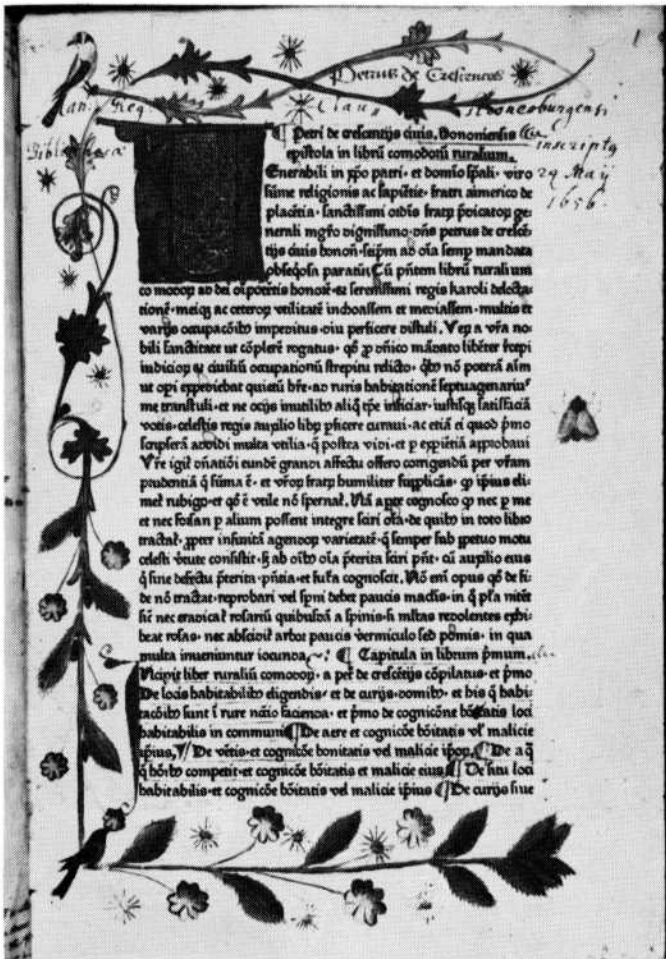 1
Petrus de Crescencijs
Can: Reg Claus Neoburgensis
Bibliothecæ inscriptq
29 Maij
1656.
¶ Petri de crescentijs ciuis. bononiensis
epistola in librū comodorū ruralium.
Enerabili in xp̄o patri. et domīo sp̄ali. viro
sūme religionis ac sapiētie. fratri aimerico de
placētia. sanctissimi ordīs fratꝝ p̄dicatoꝝ ge-
nerali mgr̄o dignissimo. dn̄s petrus de crescē-
tijs ciuis bonoñ. seip̄m ad oīa semꝑ mandata
obseq̄osa paratū. Cū p̄ntem librū ruralium
cōmodoꝝ ad dei oīpotētis honorē. et serenissimi regis karoli delecta-
tionē. meiqꝫ ac ceteroꝝ vtilitatē inchoassem et mediassem. multis et
varijs occupacōibꝰ impeditus. diu perficere distuli. Veꝝ a vr̄a no-
bili sanctitate ut cōplerē rogatus. qd̄ ꝓ dn̄ico mādato libēter suscepi
iudicioꝝ et ciuiliū occupationū strepitu relicto.
ut opi expediebat quietū ad ruris habitationē septuagenariuˢ
me transtuli. et ne ocijs inutilibꝰ aliq̄ tp̄e inficiar. iustisqꝫ satisfaciā
votis. celestis regis auxilio libꝝ ꝑficere curaui. ac etiā ei quod p̄mo
scripserā addidi multa vtilia. q̄ postea vidi. et ꝑ expiētiā approbaui
Vr̄e igit̄ dn̄atiōi eundē grandi affectu offero corrigendū per vr̄am
prudentiā q̄ sūma ē. et vr̄oꝝ fratꝝ humiliter supplicās. ꝙ ip̄ius eli-
met̄ rubigo. et qd̄ ē vtile nō spernat̄. Nā aperte cognosco ꝙ nec ꝑ me
et nec forsan ꝑ alium possent integre sciri oīa. de quibꝰ in toto libro
tractat̄. ꝓpter infinitā agendoꝝ varietatē. q̄ semper sub ꝑpetuo motu
celesti v̄tute consistit. sꝫ ab oībꝰ oīa p̄terita sciri pn̄t. cū auxilio eius
q̄ sine defectu p̄terita. p̄ntia. et fut̄a cognoscit. Nō em̄ opus qd̄ de fi-
de nō tractat. reprobari vel sp̄ni debet paucis maclis. in q̄ pl̄a nitēt
sic̄ nec eradicat̄ rosariū quibusdā a spinis. si ml̄tas redolentes exhi-
beat rosas. nec abscidit̄ arbor paucis vermiculo sed pōmis. in qua
multa inueniuntur iocunda. ¶ Capitula in librum p̄mum.
Ncipit liber ruraliū comodoꝝ. a petr̄ de crescētijs cōpilatus. et p̄mo
De locis habitabilibꝰ eligendis. et de curijs. domibꝰ. et his q̄ habi-
tacōibꝰ sunt ī rure nc̄cio facienda. et p̄mo de cognicōne bōitatis loci
habitabilis in communi ¶ De aere et cognicōe bōitatis vl̄ malicie
ip̄ius. ¶ De vētis. et cognicōe bonitatis vel malicie ip̄oꝝ. ¶ De aq̄
q̄ hōībꝰ competit. et cognicōe bōitatis et malicie eius ¶ De situ loci
habitabilis. et cognicōe bōitatis vel malicie ip̄ius ¶ De curijs siue